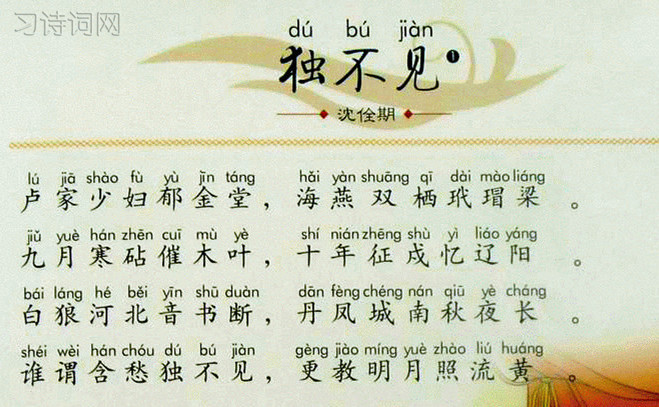 习诗词网
dú bú jiàn
独不见❶
沈佺期
lú jiā shào fù yù jīn táng hǎi yàn shuāng qī dài mào liáng
卢家少妇郁金堂，海燕双栖玳瑁梁。
jiǔ yuè hán zhēn cuī mù yè shí nián zhēng shù yì liáo yáng
九月寒砧催木叶，十年征戍忆辽阳。
bái láng hé běi yīn shū duàn dān fèng chéng nán qiū yè cháng
白狼河北音书断，丹凤城南秋夜长。
shéi wèi hán chóu dú bú jiàn gèng jiào míng yuè zhào liú huáng
谁谓含愁独不见，更教明月照流黄。